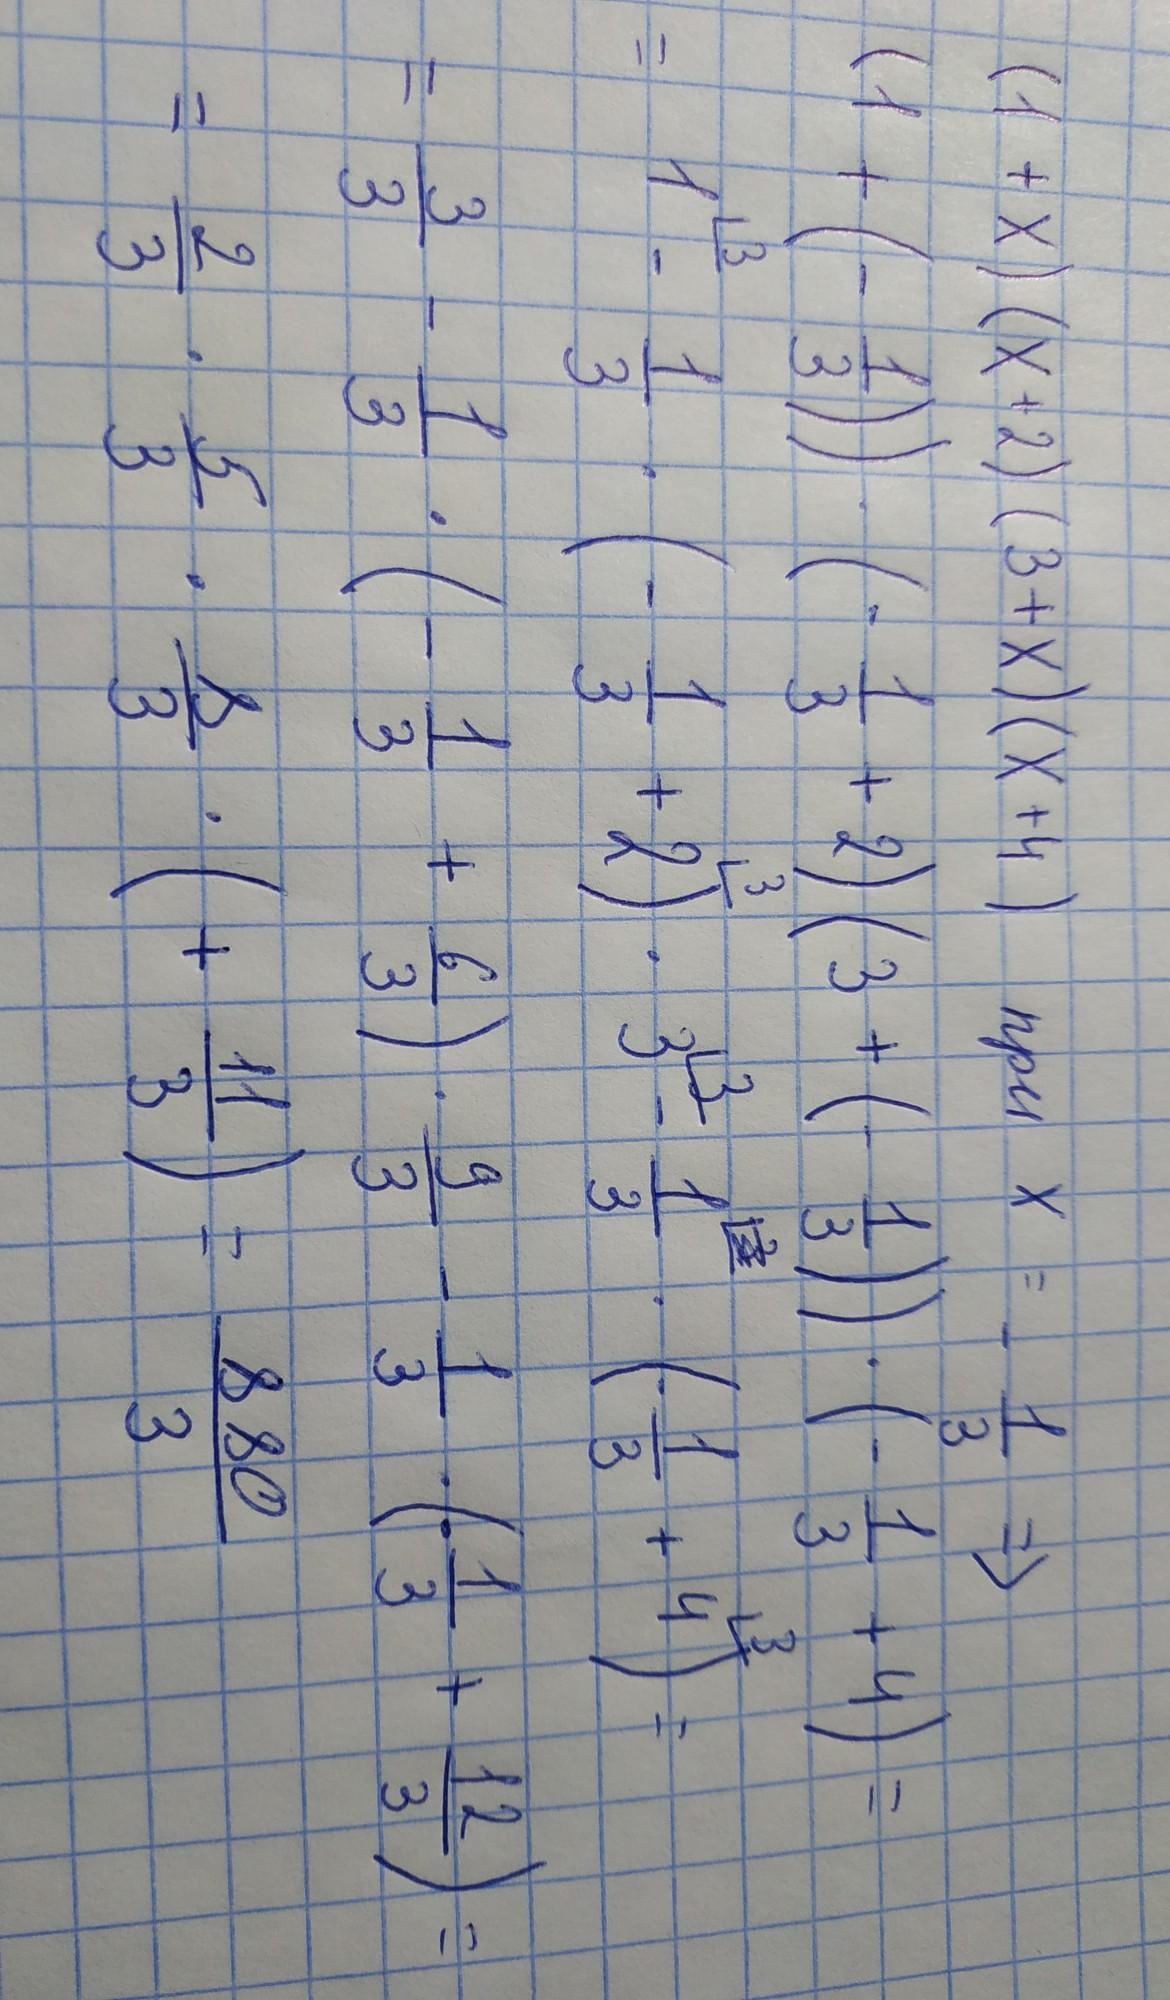 (1 + x)(x+2)(3+x)(x+4) при x = - 1/3 =>
(1 + (- 1/3)) · (- 1/3 + 2)(3 + (- 1/3)) · (- 1/3 + 4) =
= 1⌊3 - 1/3 · (- 1/3 + 2⌊3) · 3⌊3 - 1/3 · (- 1/3 + 4⌊3) =
= 3/3 - 1/3 · (- 1/3 + 6/3) · 9/3 - 1/3 · (- 1/3 + 12/3) =
= 2/3 · 5/3 · 8/3 · (+ 11/3) = 880/3